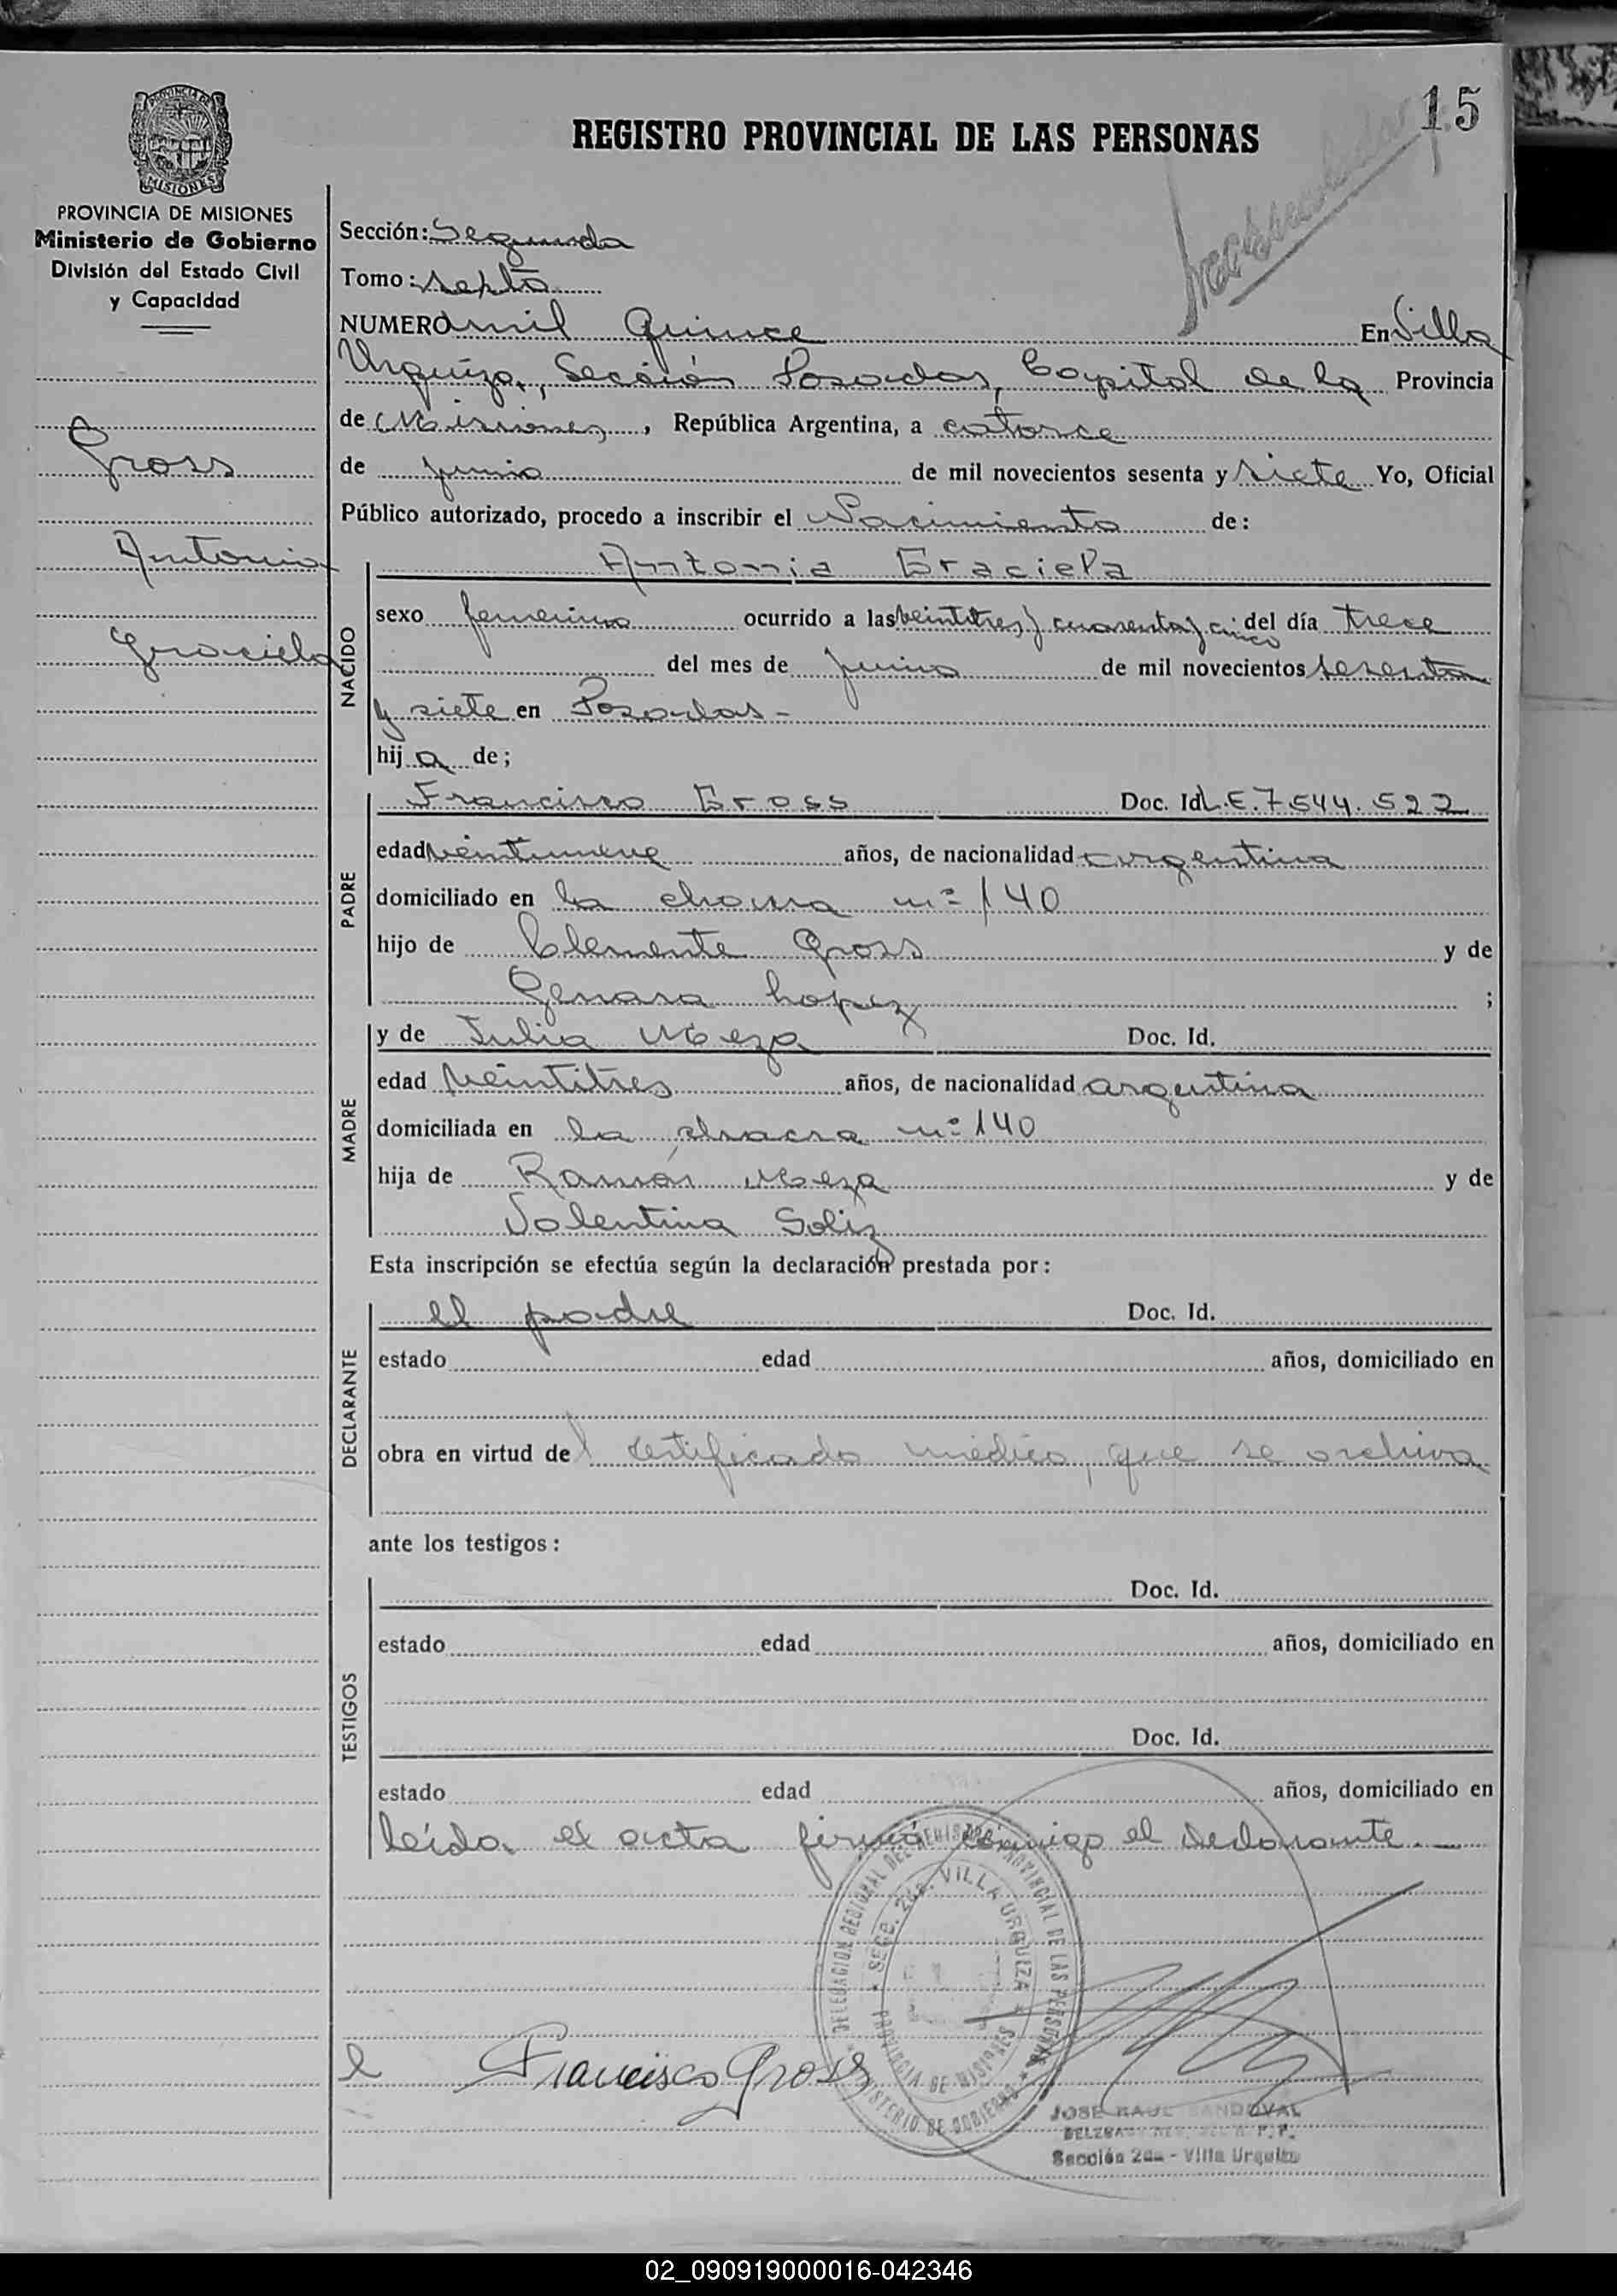 15
REGISTRO PROVINCIAL DE LAS PERSONAS
PROVINCIA DE MISIONES
MISIONES
PROVINCIA DE MISIONES
Ministerio de Gobierno
División del Estado Civil
y Capacidad
Gross
Antonia
Graciela
Sección: Segunda
Tomo: septo
NUMERO mil Quince En Villa
Urquiza, Sección Posadas, Capital de la Provincia
de Misiones, República Argentina, a catorce
de junio de mil novecientos sesenta y siete Yo, Oficial
Público autorizado, procedo a inscribir el Nacimiento de:
NACIDO
Antonia Graciela
sexo femenino ocurrido a las veintitres y cuarenta y cinco del día trece
del mes de junio de mil novecientos sesenta
y siete en Posadas-
hij a de;
PADRE
Francisco Gross Doc. Id L.E.7.544.522
edad veintinueve años, de nacionalidad argentina
domiciliado en la chacra nº 140
hijo de Clemente Gross y de
Genara Lopez ;
MADRE
y de Julia Meza Doc. Id.
edad veintitres años, de nacionalidad argentina
domiciliada en la chacra nº 140
hija de Ramón Meza y de
Valentina Soliz
Esta inscripción se efectúa según la declaración prestada por:
DECLARANTE
el padre Doc. Id.
estado edad años, domiciliado en
obra en virtud del certificado médico, que se archiva
ante los testigos:
TESTIGOS
Doc. Id.
estado edad años, domiciliado en
Doc. Id.
estado edad años, domiciliado en
leída el acta firmó conmigo el declarante.—
DELEGACION REGIONAL DEL REGISTRO PROVINCIAL DE LAS PERSONAS
MINISTERIO DE GOBIERNO
SECC. 2da. VILLA URQUIZA
PROVINCIA DE MISIONES
Francisco Gross
JOSE RAUL SANDOVAL
Sección 2da - Villa Urquiza
02_090919000016-042346